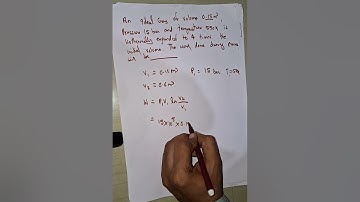 An Ideal Gas of volume 0.15m³
Pressure 15 bar and temperature 550K is
isothermally expanded to 4 times the
initial volume. The work done during process
will be
V₁ = 0.15m³ P₁ = 15 bar T=550
V₂ = 0.6m³
W = P₁V₁ ln V₂/V₁
= 15×10⁵×0.1